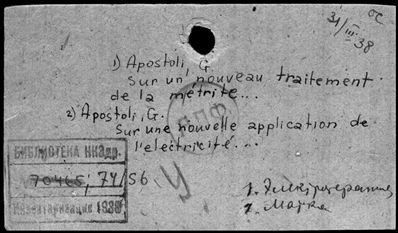 31/III 38
1) Apostoli, G.
Sur un nouveau traitement
de la métrite...
2) Apostoli, G.
Sur une nouvelle application de
l'electricité...
БИБЛИОТЕКА НКЗдр.
70465; 74/56
Инвентаризация 1938
1. Электротерапия
2. Матка